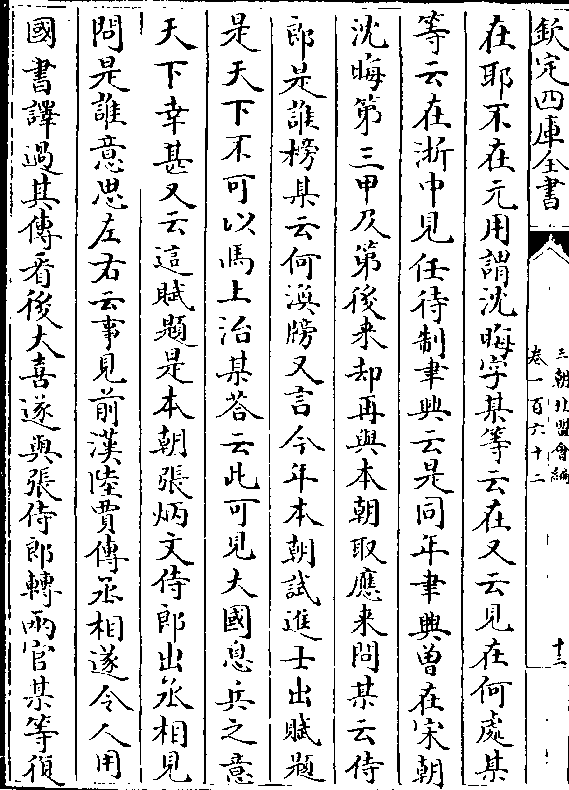 欽定四庫全書
三朝北盟會編
卷一百六十二
十三
在耶不在元用謂沈晦字某等云在又云見在何處某
等云在浙中見任待制聿興云是同年聿興曽在宋朝
沈晦第三甲及第後来却再與本朝取應来問某云侍
郎是誰榜某云何渙牓又言今年本朝試進士出賦題
是天下不可以馬上治某荅云此可見大國息兵之意
天下幸甚又云這賦題是本朝張炳文侍郎出丞相見
問是誰意思左右云事見前漢陸賈傳丞相遂令人用
國書譯過其傳看後大喜遂與張侍郎轉兩官某等復